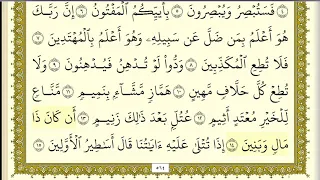 ٤ فَسَتُبْصِرُ وَيُبْصِرُونَ ٥ بِأَييِّكُمُ ٱلْمَفْتُونُ ٦ إِنَّ رَبَّكَ
هُوَ أَعْلَمُ بِمَن ضَلَّ عَن سَبِيلِهِۦ وَهُوَ أَعْلَمُ بِٱلْمُهْتَدِينَ ٧
فَلَا تُطِعِ ٱلْمُكَذِّبِينَ ٨ وَدُّوا۟ لَوْ تُدْهِنُ فَيُدْهِنُونَ ٩ وَلَا
تُطِعْ كُلَّ حَلَّافٍ مَّهِينٍ ١٠ هَمَّازٍ مَّشَّآءٍۭ بِنَمِيمٍ ١١ مَّنَّاعٍ
لِّلْخَيْرِ مُعْتَدٍ أَثِيمٍ ١٢ عُتُلٍّۭ بَعْدَ ذَٰلِكَ زَنِيمٍ ١٣ أَن كَانَ ذَا
مَالٍ وَبَنِينَ ١٤ إِذَا تُتْلَىٰ عَلَيْهِ ءَايَٰتُنَا قَالَ أَسَٰطِيرُ ٱلْأَوَّلِينَ ١٥
٥٦٤